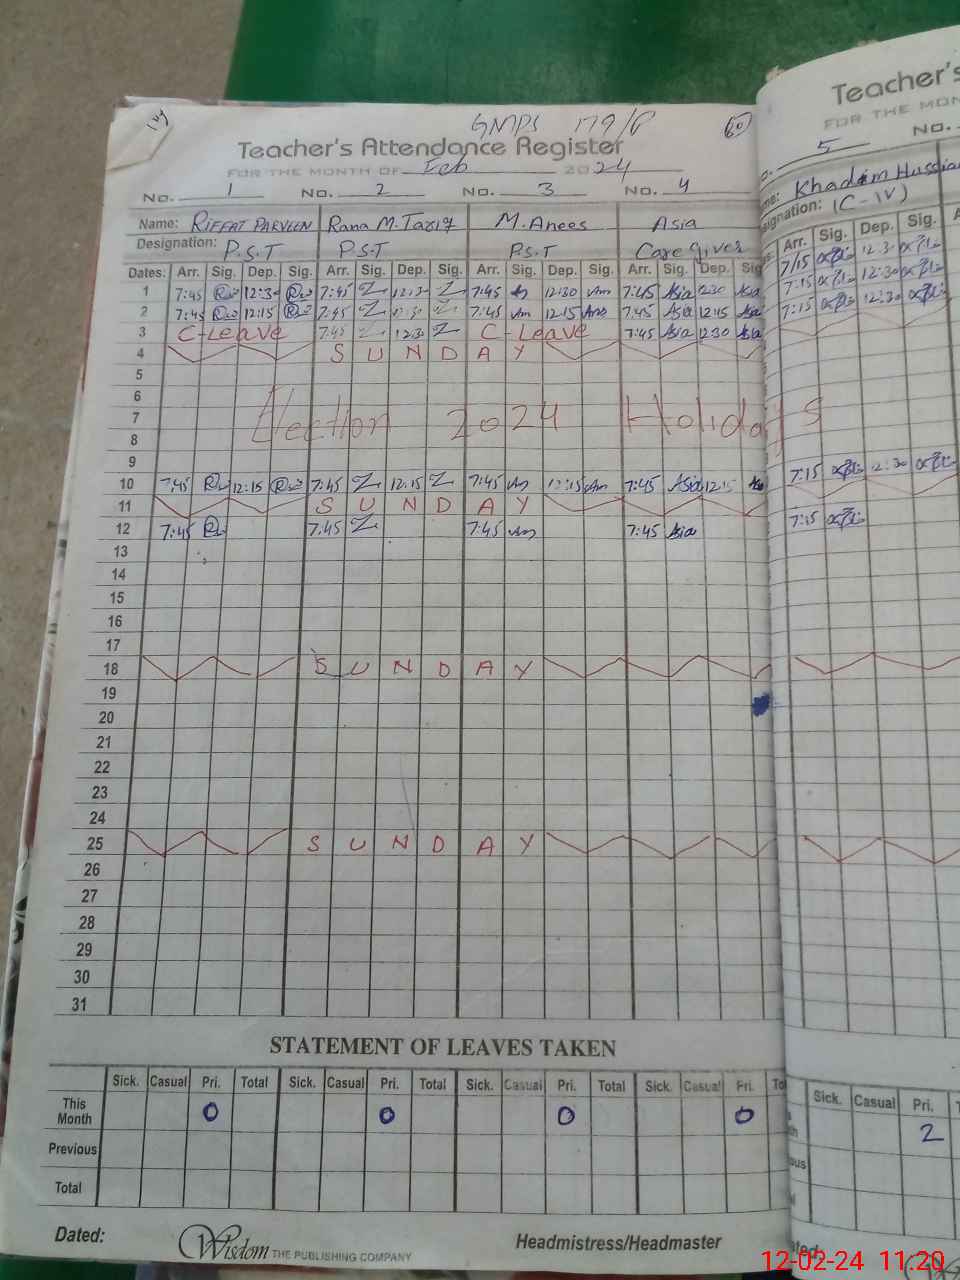 GMPS 179/P 60
Teacher's Attendance Register
FOR THE MONTH OF Feb 2024
No. 1 No. 2 No. 3 No. 4
Name: RIFFAT PARVEEN Rana M. Tariq M. Anees Asia
Designation: P.S.T P.S.T P.S.T Care giver
Dates: Arr. Sig. Dep. Sig. Arr. Sig. Dep. Sig. Arr. Sig. Dep. Sig. Arr. Sig. Dep. Sig
1 7:45 12:30 7:45 12:30 7:45 12:30 7:45 Asia 12:30 Asia
2 7:45 12:15 7:45 7:45 12:15 7:45 Asia 12:15 Asia
3 C-Leave 7:45 12:30 C-Leave 7:45 Asia 12:30 Asia
4 SUNDAY
5
6
7 Election 2024 Holidays
8
9
10 7:45 12:15 7:45 12:15 7:45 12:15 7:45 Asia 12:15
11 SUNDAY
12 7:45 7:45 7:45 7:45 Asia
13
14
15
16
17
18 SUNDAY
19
20
21
22
23
24
25 SUNDAY
26
27
28
29
30
31
STATEMENT OF LEAVES TAKEN
Sick. Casual Pri. Total Sick. Casual Pri. Total Sick. Casual Pri. Total Sick. Casual Pri. To
This Month 0 0 0 0
Previous
Total
Dated: Wisdom THE PUBLISHING COMPANY Headmistress/Headmaster
Teacher's
FOR THE MON
5 No.
Khadim Hussian
signation: (C-IV)
Arr. Sig. Dep. Sig.
7/15 12:30
7:15 12:30
7:15 12:30
7:15 12:30
7:15
Sick. Casual Pri.
2
12-02-24 11:20